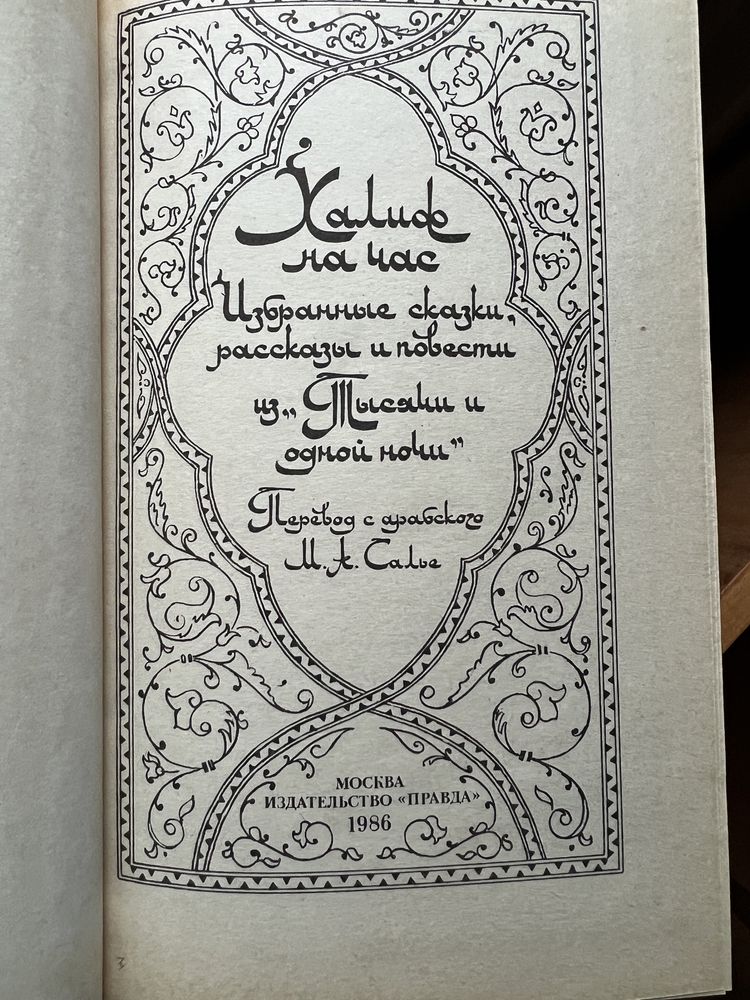 Халиф
на час
Избранные сказки,
рассказы и повести
из „Тысячи и
одной ночи“
Перевод с арабского
М. А. Салье
МОСКВА
ИЗДАТЕЛЬСТВО «ПРАВДА»
1986
3